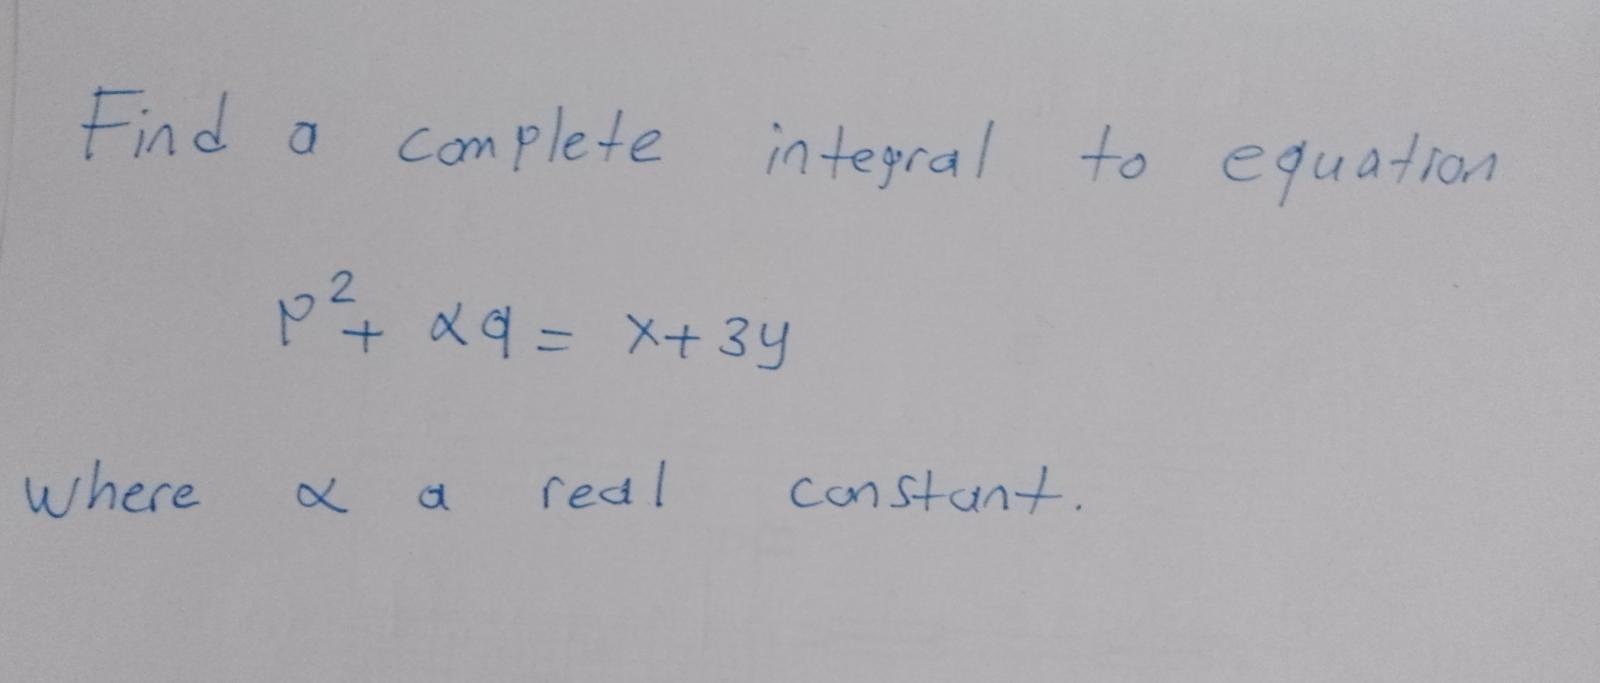 Find a complete integral to equation
p² + αq = x + 3y
where α a real constant.